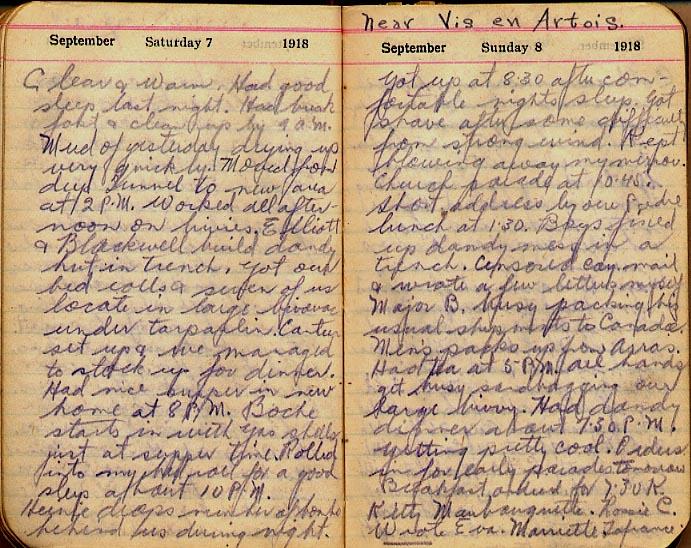 September Saturday 7 1918
Clear & warm. Had good
sleep last night. Had break
fast & clean up by 9 a.m.
Mud of yesterday drying up
very quickly. Moved from
deep tunnel to new area
at 12 P.M. Worked all after-
noon on bivies. Elliott
& Blackwell build dandy
hut in trench. Got our
bed rolls & seven of us
locate in large bivouac
under tarpaulin. Canteen
set up & we managed
to stock up for dinner.
Had nice supper in new
home at 8 P.M. Boche
starts in with gas shells
just at supper time. Rolled
into my bed roll for a good
sleep about 10 P.M.
Heinie drops number of bombs
behind us during night.
near Vis en Artois.
September Sunday 8 1918
Got up at 8:30 after com-
fortable nights sleep. Got
shave after some difficulty
from strong wind. Kept
blowing away my mirror.
Church parade at 10:45.
Short address by our Padre
lunch at 1:30. Boys fixed
up dandy mess in a
trench. Censored coy. mail
& wrote a few letters myself
Major B. busy packing his
usual shipments to Canada.
Men's packs up from Arras.
Had tea at 5 P.M. all hands
get busy sandbagging our
large bivvy. Had dandy
dinner about 7:30 P.M.
getting pretty cool. Orders
in for early parades tomorrow
Breakfast ordered for 7:30 K
Kitty Rossie C.
Wrote Eva. Marriette